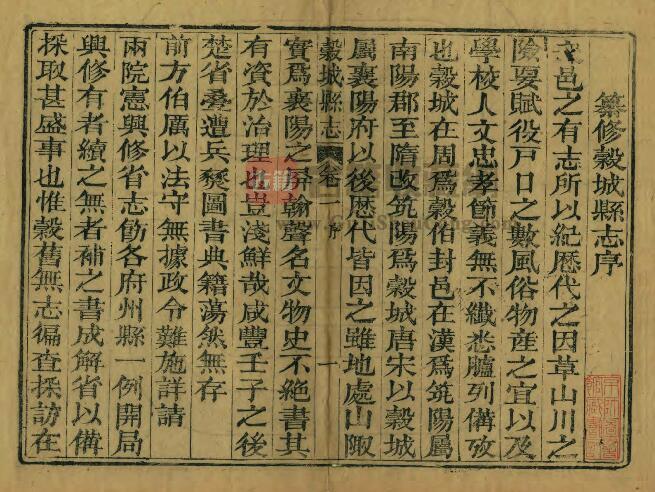 纂修穀城縣志序
邑之有志所以紀歷代之因革山川之
險要賦役戶口之數風俗物産之宜以及
學校人文忠孝節義無不纖悉臚列備攷
也穀城在周爲穀伯封邑在漢爲筑陽屬
南陽郡至隋改筑陽爲穀城唐宋以穀城
屬襄陽府以後歷代皆因之雖地處山陬
穀城縣志 卷一 序 一
實爲襄陽之屏翰聲名文物史不絕書其
有資於治理也豈淺鮮哉咸豐壬子之後
楚省疊遭兵燹圖書典籍蕩然無存
前方伯厲以法守無據政令難施詳請
兩院憲興修省志飭各府州縣一例開局
興修有者續之無者補之書成解省以備
採取甚盛事也惟穀舊無志徧查採訪在